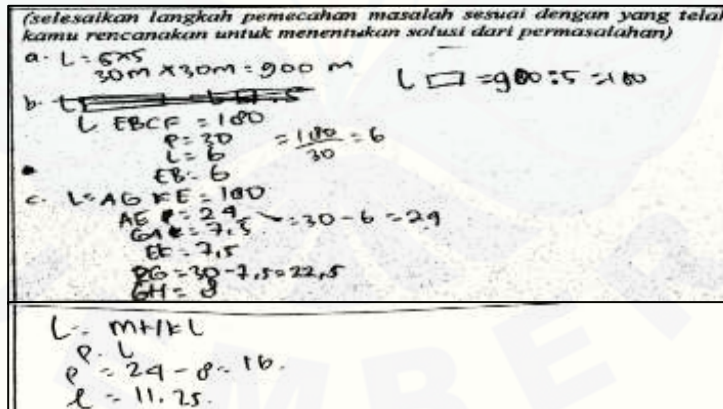 (selesaikan langkah pemecahan masalah sesuai dengan yang telah
kamu rencanakan untuk menentukan solusi dari permasalahan)
a. L = s×s
30m × 30m = 900 m
L ▭ = 900 : 5 = 180
b.
L EBCF = 180
P = 30 = 180/30 = 6
L = 6
EB = 6
c. L = AGKE = 180
AE P = 24 = 30 - 6 = 24
GA = 7,5
EK = 7,5
DG = 30 - 7,5 = 22,5
GH = 8
L = MHKL
P. L
P = 24 - 8 = 16.
l = 11.25.